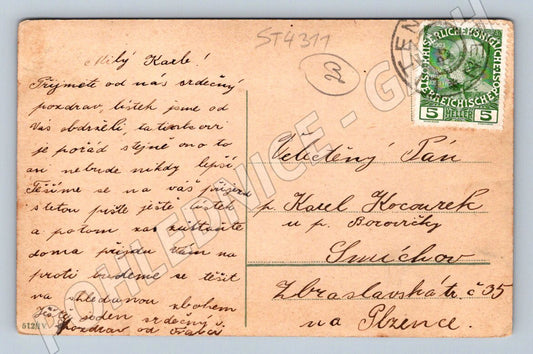 ST4311
Milý Karle!
Přijměte od nás srdečný
pozdrav, lístek jsme od
Vás obdrželi, ta
je pořád stejné ono to
ani nebude nikdy lepší
Těšíme se na váš příjezd
s tetou pište ještě lístek
a potom
doma přijdu Vám na
proti budeme se těšit
na shledanou sbohem
srdečný
pozdrav od
512N V
TEN
KAISERLICHE KÖNIGLICHE
ÖSTERREICHISCHE
5 HELLER 5
Velectěný Pán
p. Karel Kocourek
u p. Borovičky
Smíchov
Zbraslavská tř. č 35
na Plzence.
POHLEDNICE - G